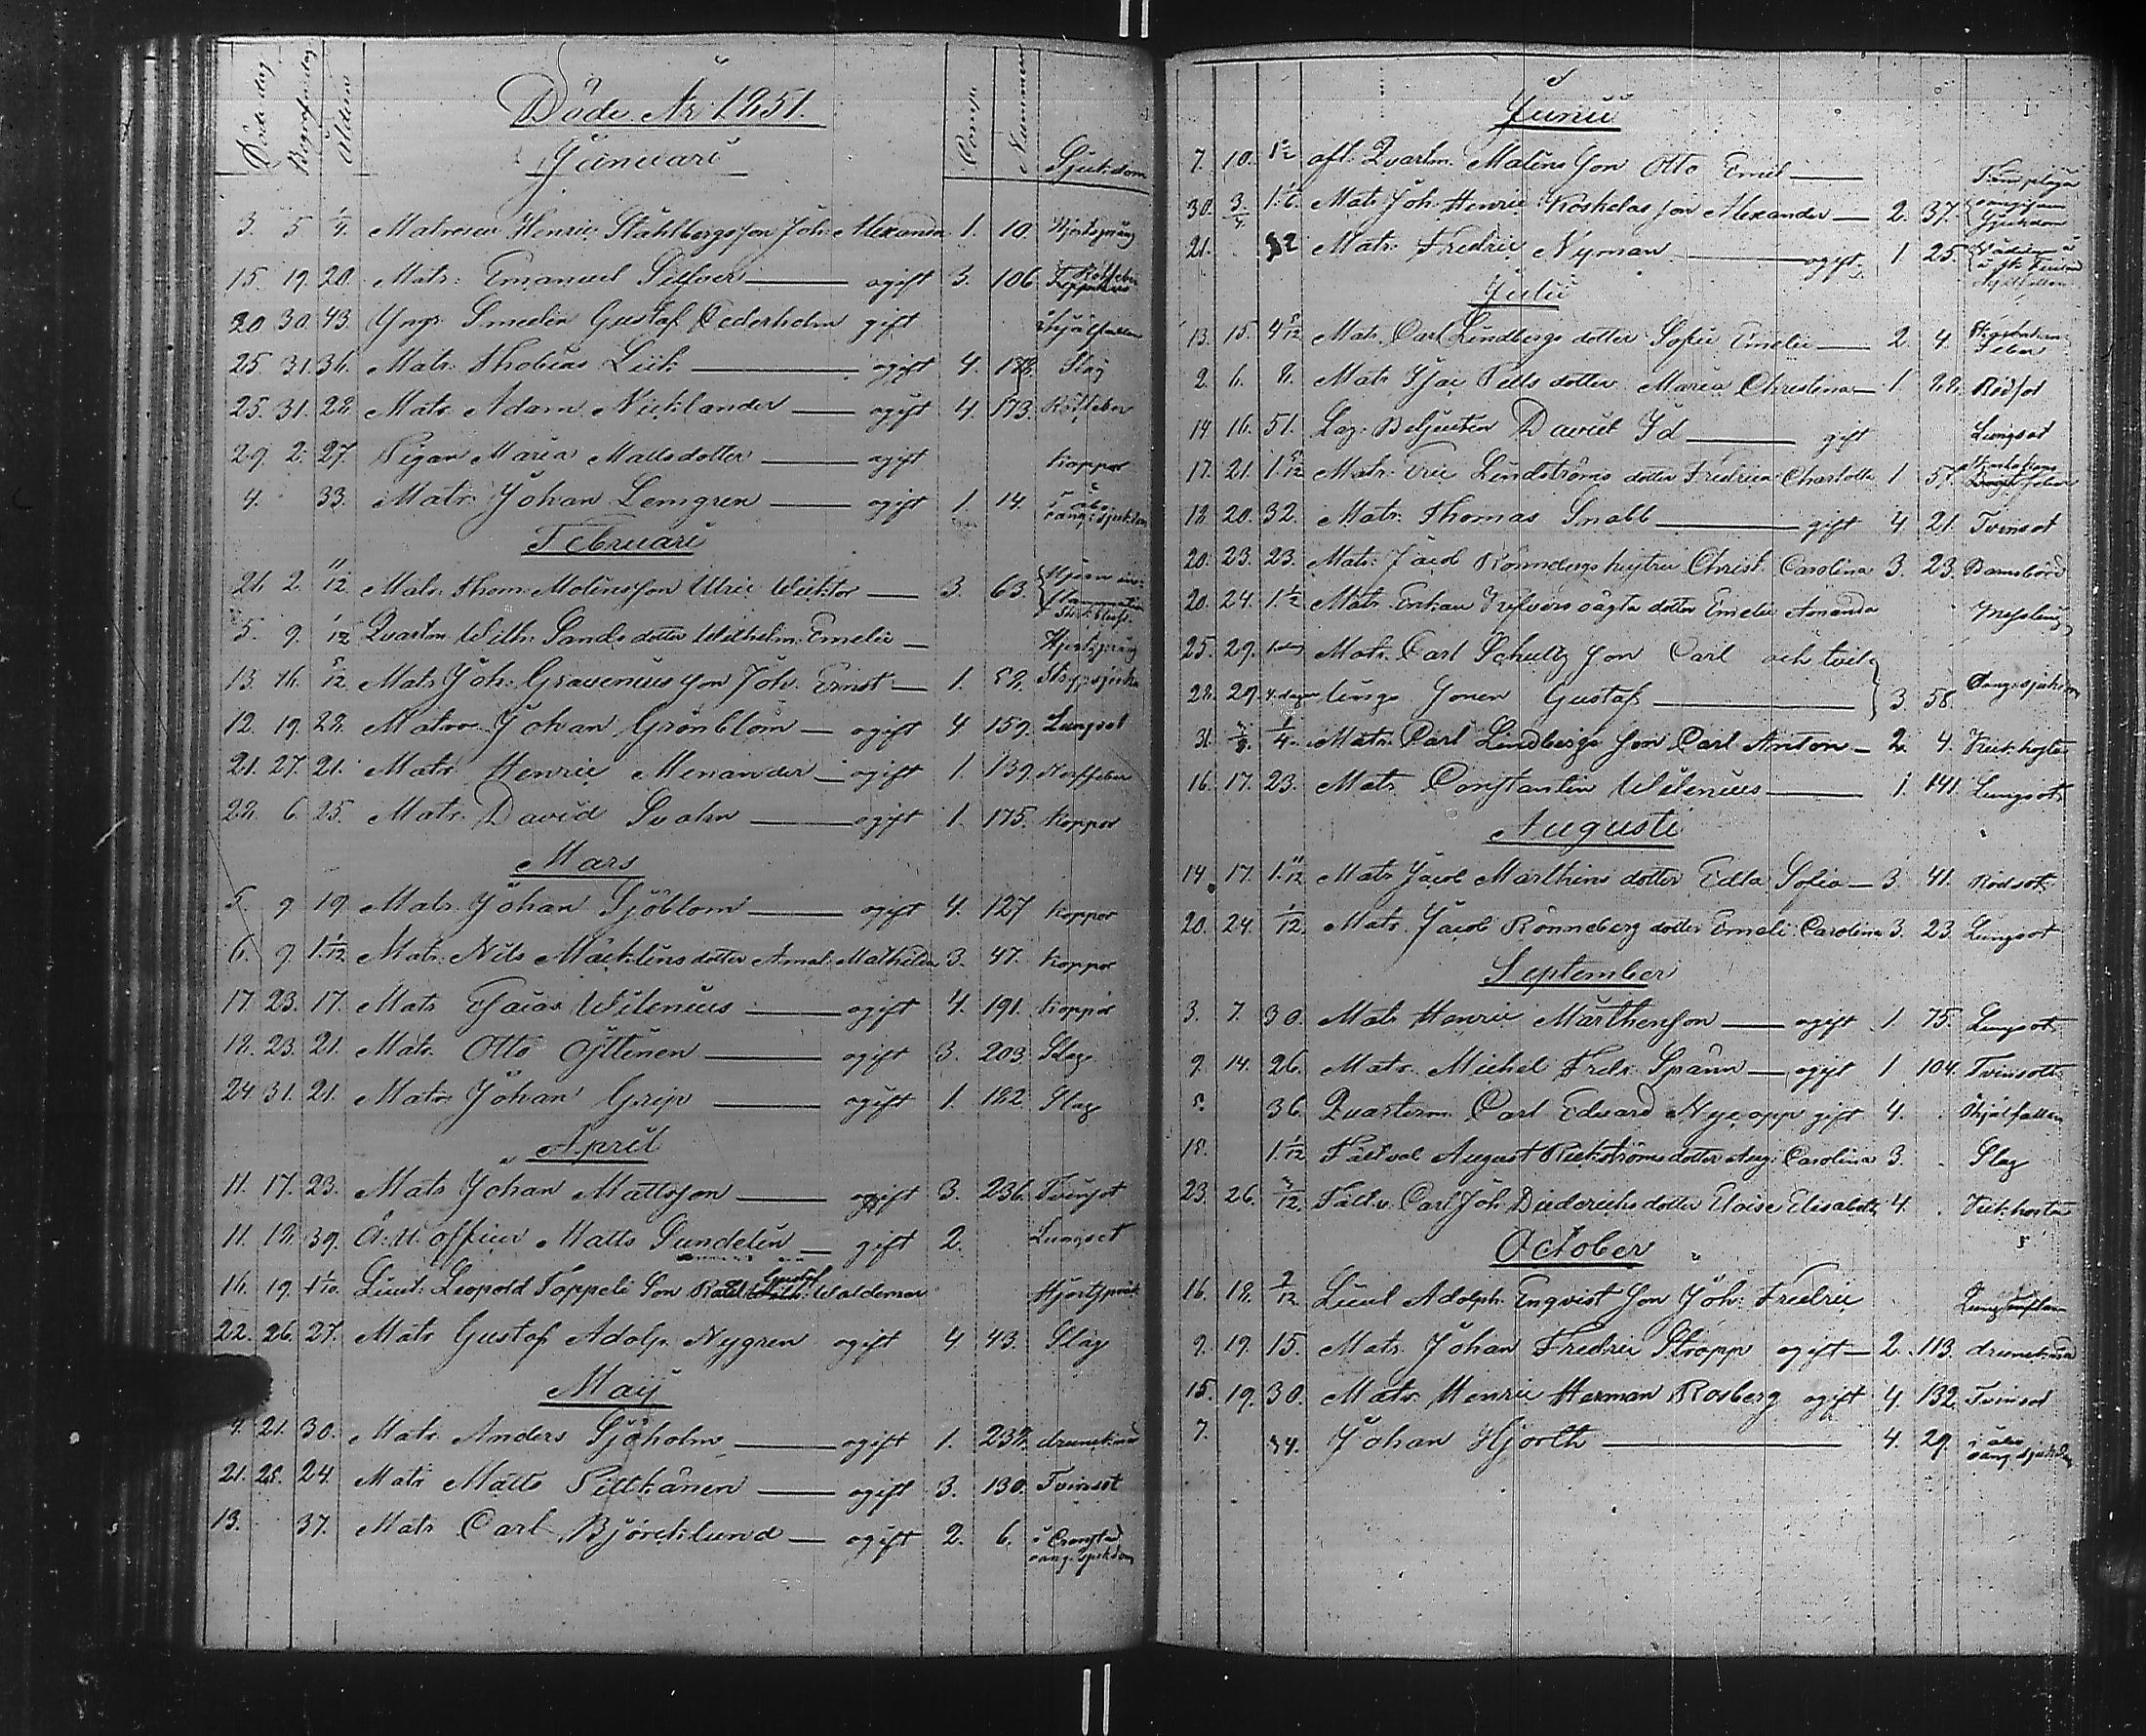 Döde År 1851.
Döde dag Begrafn. dag Ålder Comp. Nummer Sjukdom
Januari
3. 5 1/4. Matrosen Henric Ståhlbergs son Joh. Alexander 1. 10. Hjertsprång
15. 19. 20. Matr. Emanuel Silfver ogift 3. 106 Rötfeber
20 30. 43. Yngr. Smeden Gustaf Cederholm gift Ihjälfallen
25 31. 36. Matr. Thobias Liik ogift 4. Slag
25. 31. 28. Matr. Adam Nicklander ogift 4. 173. Rötfeber
29. 2. 27. Pigan Maria Mattsdotter ogift Koppor
4. 33. Matr. Johan Lemgren ogift 1. 14. i Åbo oang. sjukdom
Februari
21. 2. 11/12 Matr. Thom. Molins son Ulric Wicktor 3. 63.
5. 9. 1/12 Qvartm. Wilh. Sands dotter Wilhelm. Emelie Hjertsprång
13. 16. 5/12 Matr. Joh. Gravenius son Joh. Ernst 1. 52.
12. 19. 28. Matr. Johan Grönblom ogift 4 159. Lungsot
21. 27. 21. Matr. Henric Menander ogift 1. 139. Nerffeber
28. 6. 25. Matr. David Svahn ogift 1. 175. Koppor
Mars
5 9 19 Matr. Johan Sjöblom ogift 4. 127 Koppor
6. 9 1.1/12 Matr. Nils Mäcklins dotter Amal. Mathilda 3. 47. Koppor
17. 23. 17. Matr. Esaias Wilenius ogift 4. 191. Koppor
18. 23. 21. Matr. Otto Öjttinen ogift 3. 203. Slag
24 31. 21. Matr. Johan Grip ogift 1. 182. Slag
April
11. 17. 23. Matr. Johan Mattsson ogift 3. 236. Tvinsot
11. 18. 39. Ö. U. officer Matts Sundelin gift 2. Lungsot
16. 19. 4 1/10. Lieut. Leopold Toppeli Son Gustaf Waldemar Hjertsprång
22. 26. 27. Matr. Gustaf Adolp. Nygren ogift 4 43. Slag
Maij
4. 21. 30. Matr. Anders Sjöholm ogift 1. 238. drunknad
21. 28. 24. Matr. Matts Pittkänen ogift 3. 130. Tvinsot
13. 37. Matr. Carl Björcklund ogift 2. 6. i Cronstad oang. sjukdom
Junii
7. 10. afl. Qvartm. Malins Son Otto Emil Tandplåga
30. 3/7. 1.1/6. Matr. Joh. Henric Koskelas son Alexander 2. 37. oangifven Sjukdom
21. 32 Matr. Fredric Nyman ogift 1 25.
Julii
13. 15. 4 5/12 Matr. Carl Lindbergs dotter Sofie Emelie 2. 4. feber
2 6. 8. Matr. Isac Pells dotter Maria Christina 1 22. Rödsot
14 16. 51. Laz. Betjenten David Id gift Lungsot
17. 21. 1.5/12 Matr. Eric Lindströms dotter Fredrica Charlotta 1 57. feber
18. 20. 32. Matr. Thomas Snabb gift 4 21. Tvinsot
20. 23. 23. Matr. Jacob Rönnbergs hustru Christ. Carolina 3. 23. Barnsbörd
20. 24. 1.1/2 Matr. Enkan oägta dotter Emelie Amanda Messling
25. 29. 1 dag Matr. Carl Schultz son Carl och tvil-
28. 29. 4 dagar lings sonen Gustaf 3. 58. Oang. sjukdom
31. 3/8. 1/4. Matr. Carl Lindbergs son Carl Anton 2. 4. Kikhosta
16. 17. 23. Matr. Constantin Wilenius 1. 141. Lungsot
Augusti
14. 17. 1.11/12 Matr. Jacob Marthins dotter Edla Sofia 3. 41. Rödsot
20. 24. 1/12. Matr. Jacob Rönneberg dotter Emeli Carolina 3. 23. Lungsot
September
3. 7. 30. Matr. Henric Marthenson ogift 1. 75. Lungsot
9. 14. 26. Matr. Michel Fredr. Spänn ogift 1. 104. Tvinsot
5. 36. Qvarterm. Carl Edvard Nycopp gift 4. Ihjälfallen
18. 1.1/12 Fältväb. August Rickströms dotter Aug. Carolina 3. Slag
23. 26. 3/12. Fältv. Carl Joh. Diederichs dotter Eloise Elisabeth 4. Kikhosta
October
16. 18. 9/12 Lieut Adolph Enqvist son Joh. Fredric
9. 19. 15. Matr. Johan Fredric Stropp ogift 2. 113. drunknad
15. 19. 30. Matr. Henric Herman Rosberg ogift 4. 132. Tvinsot
7. 34. Johan Hjorth 4. 29. i Åbo oang. sjukdom